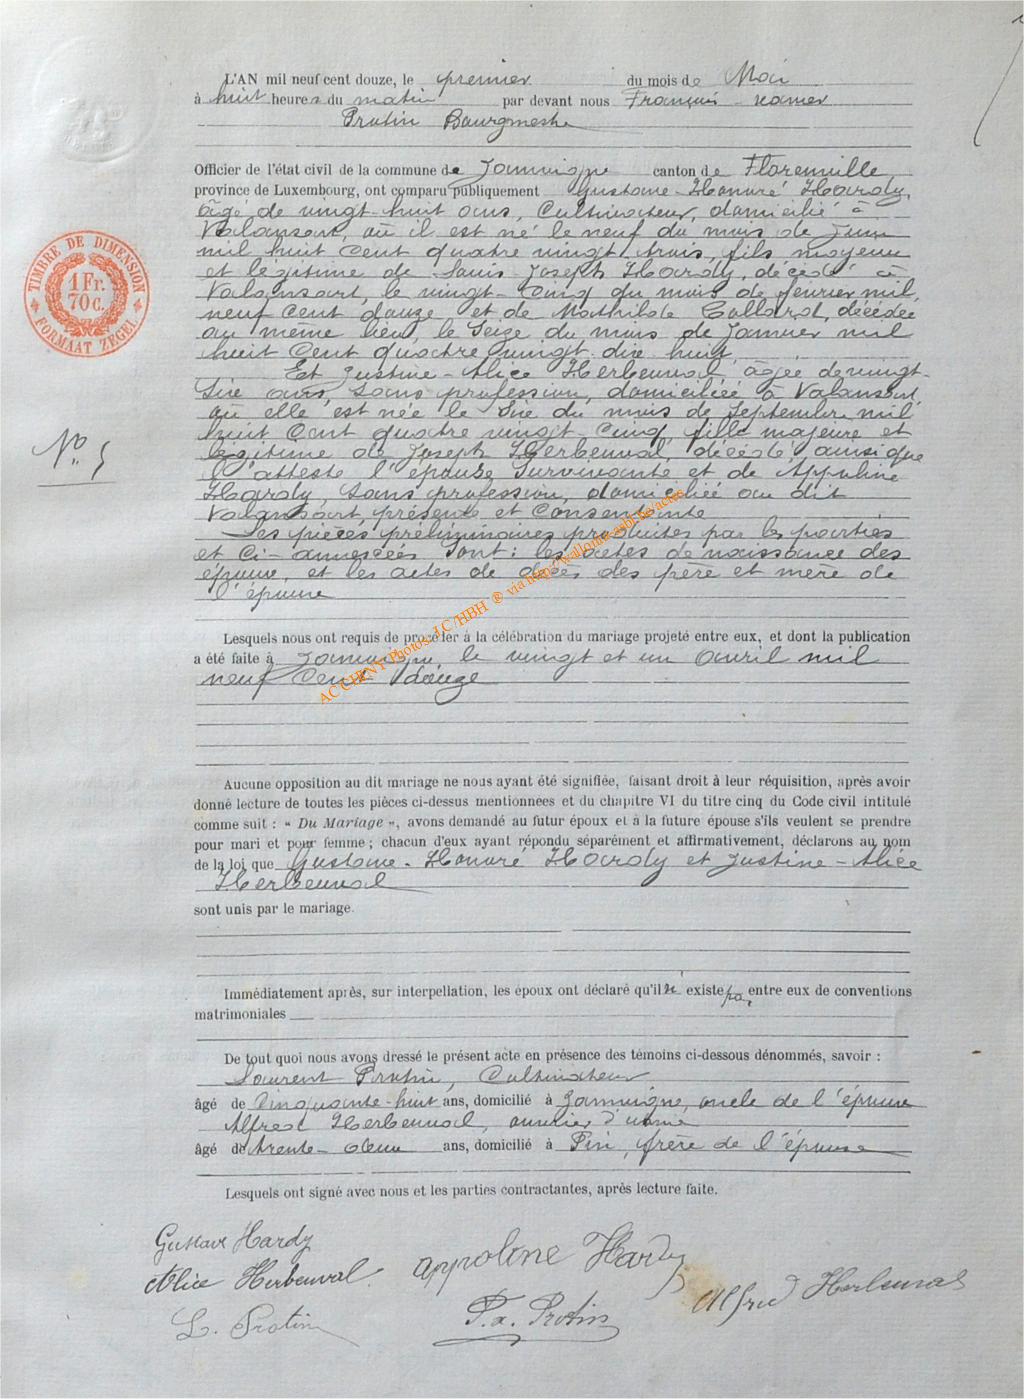 L'AN mil neuf cent douze, le premier du mois de Mai
à huit heures du matin par devant nous François-Xavier
Protin Bourgmestre
Officier de l'état civil de la commune de Jamoigne canton de Florenville,
province de Luxembourg, ont comparu publiquement Gustave-Honoré Hardy,
âgé de vingt-huit ans, Cultivateur, domicilié à
Valansart, où il est né le neuf du mois de Juin
mil huit Cent quatre vingt trois, fils majeur
et légitime de Louis Joseph Hardy, décédé à
Valansart, le vingt-Cinq du mois de février mil
neuf Cent douze, et de Mathilde Collard, décédée
au même lieu, le Seize du mois de Janvier mil
huit Cent quatre vingt dix huit
Et Justine-Alice Herbeuval, âgée de vingt-
Six ans, Sans profession, domiciliée à Valansart,
où elle est née le Six du mois de Septembre mil
huit Cent quatre vingt-Cinq, fille majeure et
légitime de Joseph Herbeuval, décédé ainsi que
l'atteste l'épouse Survivante et de Appoline
Hardy, Sans profession, domiciliée au dit
Valansart, présente et Consentante
Les pièces préliminaires produites par les parties
et Ci-annexées Sont: les actes de naissance des
époux, et les actes de décès des père et mère de
l'époux
Lesquels nous ont requis de procéder à la célébration du mariage projeté entre eux, et dont la publication
a été faite à Jamoigne, le vingt et un Avril mil
neuf Cent douze
Aucune opposition au dit mariage ne nous ayant été signifiée, faisant droit à leur réquisition, après avoir
donné lecture de toutes les pièces ci-dessus mentionnees et du chapitre VI du titre cinq du Code civil intitulé
comme suit : « Du Mariage », avons demandé au futur époux et à la future épouse s'ils veulent se prendre
pour mari et pour femme ; chacun d'eux ayant répondu séparément et affirmativement, déclarons au nom
de la loi que Gustave-Honoré Hardy et Justine-Alice
Herbeuval
sont unis par le mariage.
Immédiatement après, sur interpellation, les époux ont déclaré qu'il n'existe pas entre eux de conventions
matrimoniales
De tout quoi nous avons dressé le présent acte en présence des témoins ci-dessous dénommés, savoir :
Laurent Protin, Cultivateur
âgé de Cinquante-huit ans, domicilié à Jamoigne, oncle de l'épouse
Alfred Herbeuval, ouvrier d'usine
âgé de trente-deux ans, domicilié à Pin, frère de l'épouse
Lesquels ont signé avec nous et les parties contractantes, après lecture faite.
Gustave Hardy
Appoline Hardy
Alice Herbeuval
Alfred Herbeuval
L. Protin
F. x. Protin
TIMBRE DE DIMENSION
1 Fr.
70 c.
FORMAAT ZEGEL
N° 5